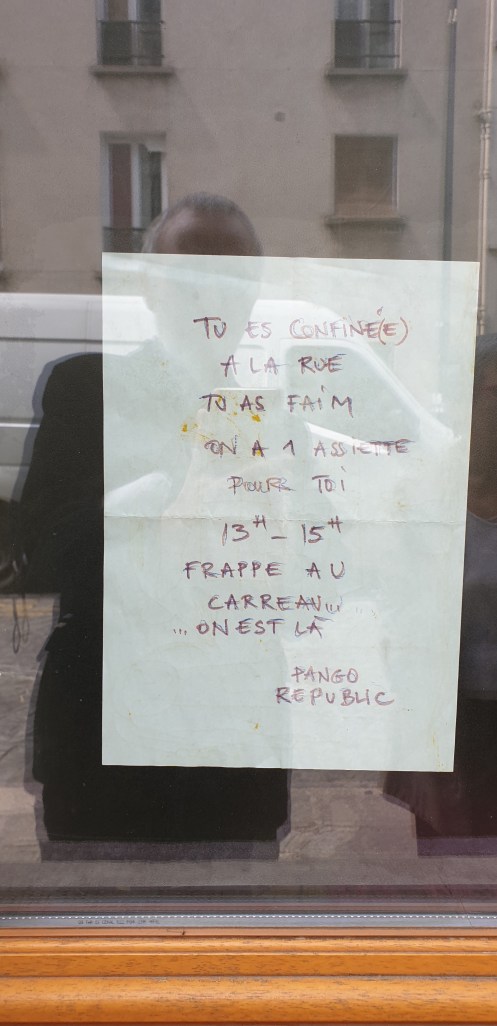 TU ES CONFINÉ(E)
A LA RUE
TU AS FAIM
ON A 1 ASSIETTE
POUR TOI
13H - 15H
FRAPPE AU
CARREAU...
...ON EST LÀ
PANGO
REPUBLIC